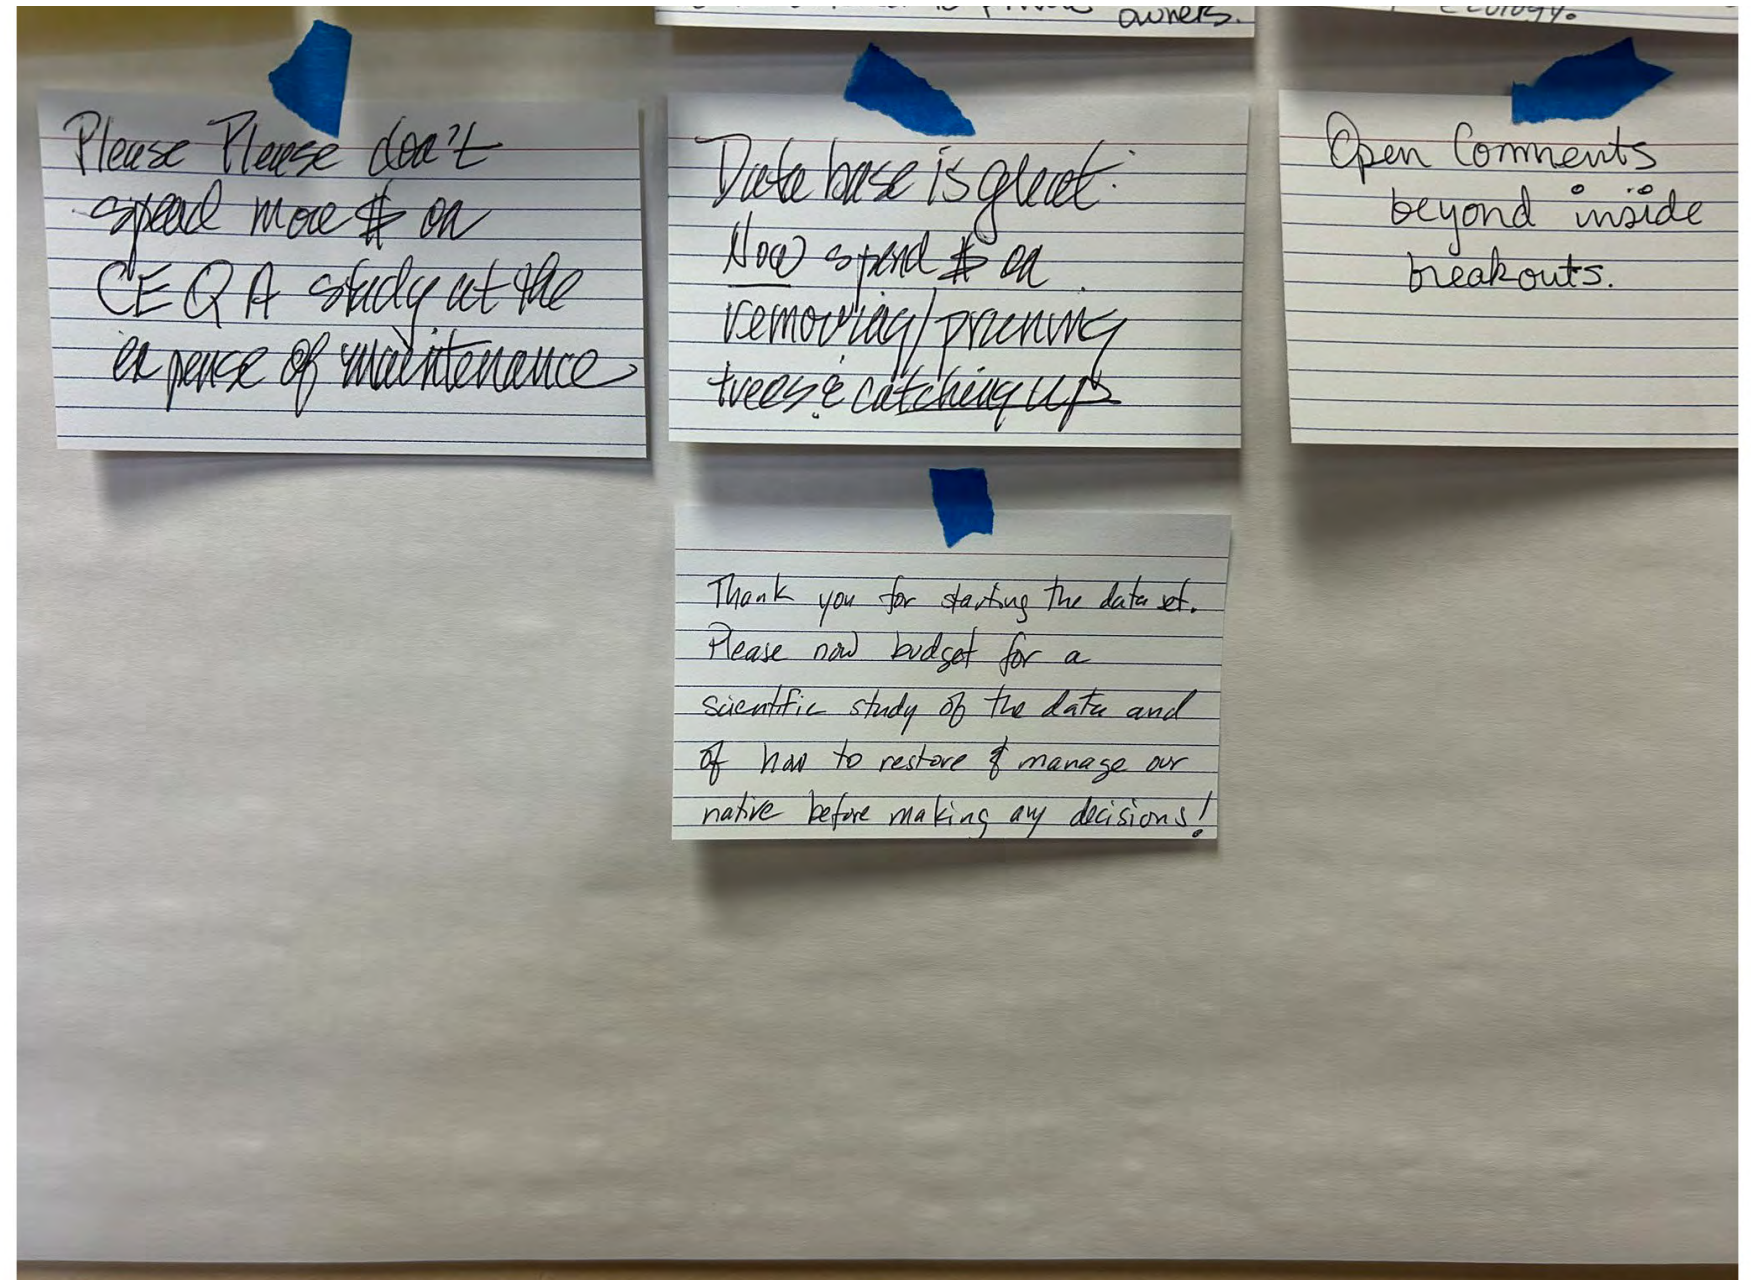 owners.
ecology.
Please Please don't
spend more $ on
CEQA study at the
expense of maintenance
Database is great.
Now spend $ on
removing/pruning
trees & catching up
Open Comments
beyond inside
breakouts.
Thank you for starting the data set.
Please now budget for a
scientific study of the data and
of how to restore & manage our
native before making any decisions!